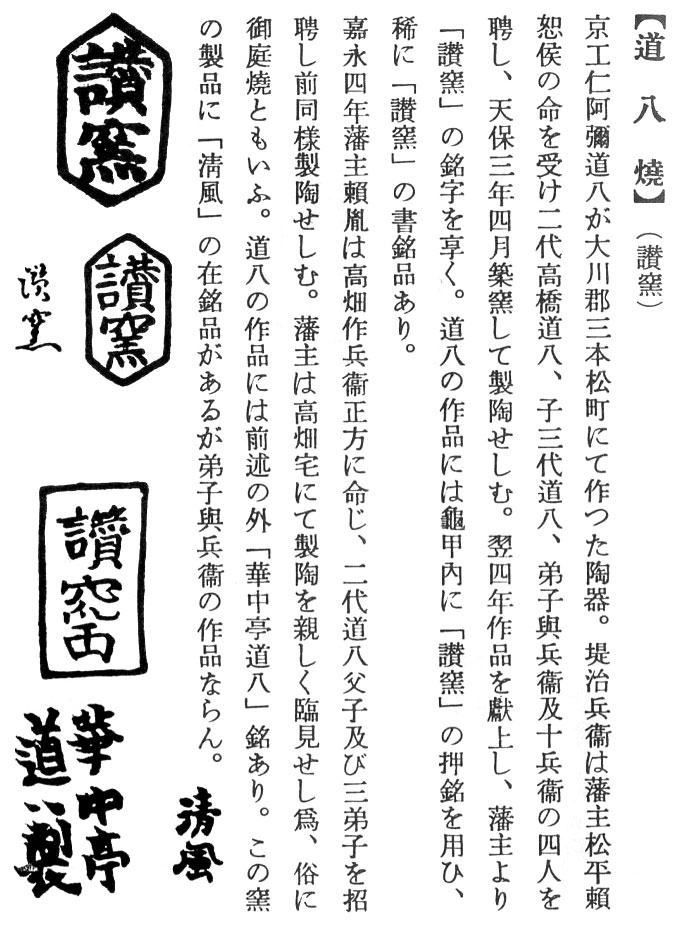 【道八燒】（讃窯）
京工仁阿彌道八が大川郡三本松町にて作つた陶器。堤治兵衞は藩主松平賴
恕侯の命を受け二代高橋道八、子三代道八、弟子與兵衞及十兵衞の四人を
聘し、天保三年四月築窯して製陶せしむ。翌四年作品を獻上し、藩主より
「讃窯」の銘字を享く。道八の作品には龜甲內に「讃窯」の押銘を用ひ、
稀に「讃窯」の書銘品あり。
嘉永四年藩主賴胤は高畑作兵衞正方に命じ、二代道八父子及び三弟子を招
聘し前同樣製陶せしむ。藩主は高畑宅にて製陶を親しく臨見せし爲、俗に
御庭燒ともいふ。道八の作品には前述の外「華中亭道八」銘あり。この窯
の製品に「淸風」の在銘品があるが弟子與兵衞の作品ならん。
清風
讃窯
讃窯
讃窯
讃窯
華中亭
道八製